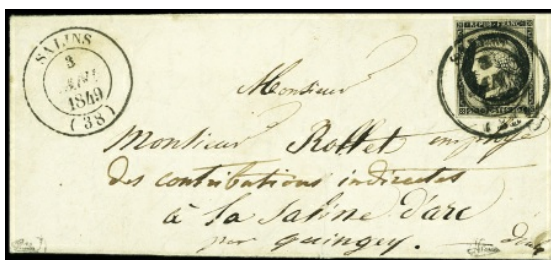 SALINS
3
JANV.
1849
(38)
REPUB. FRANC.
Monsieur
Monsieur Rollet employé
des contributions indirectes
à la Saline d'arc
par quingey. Doubs